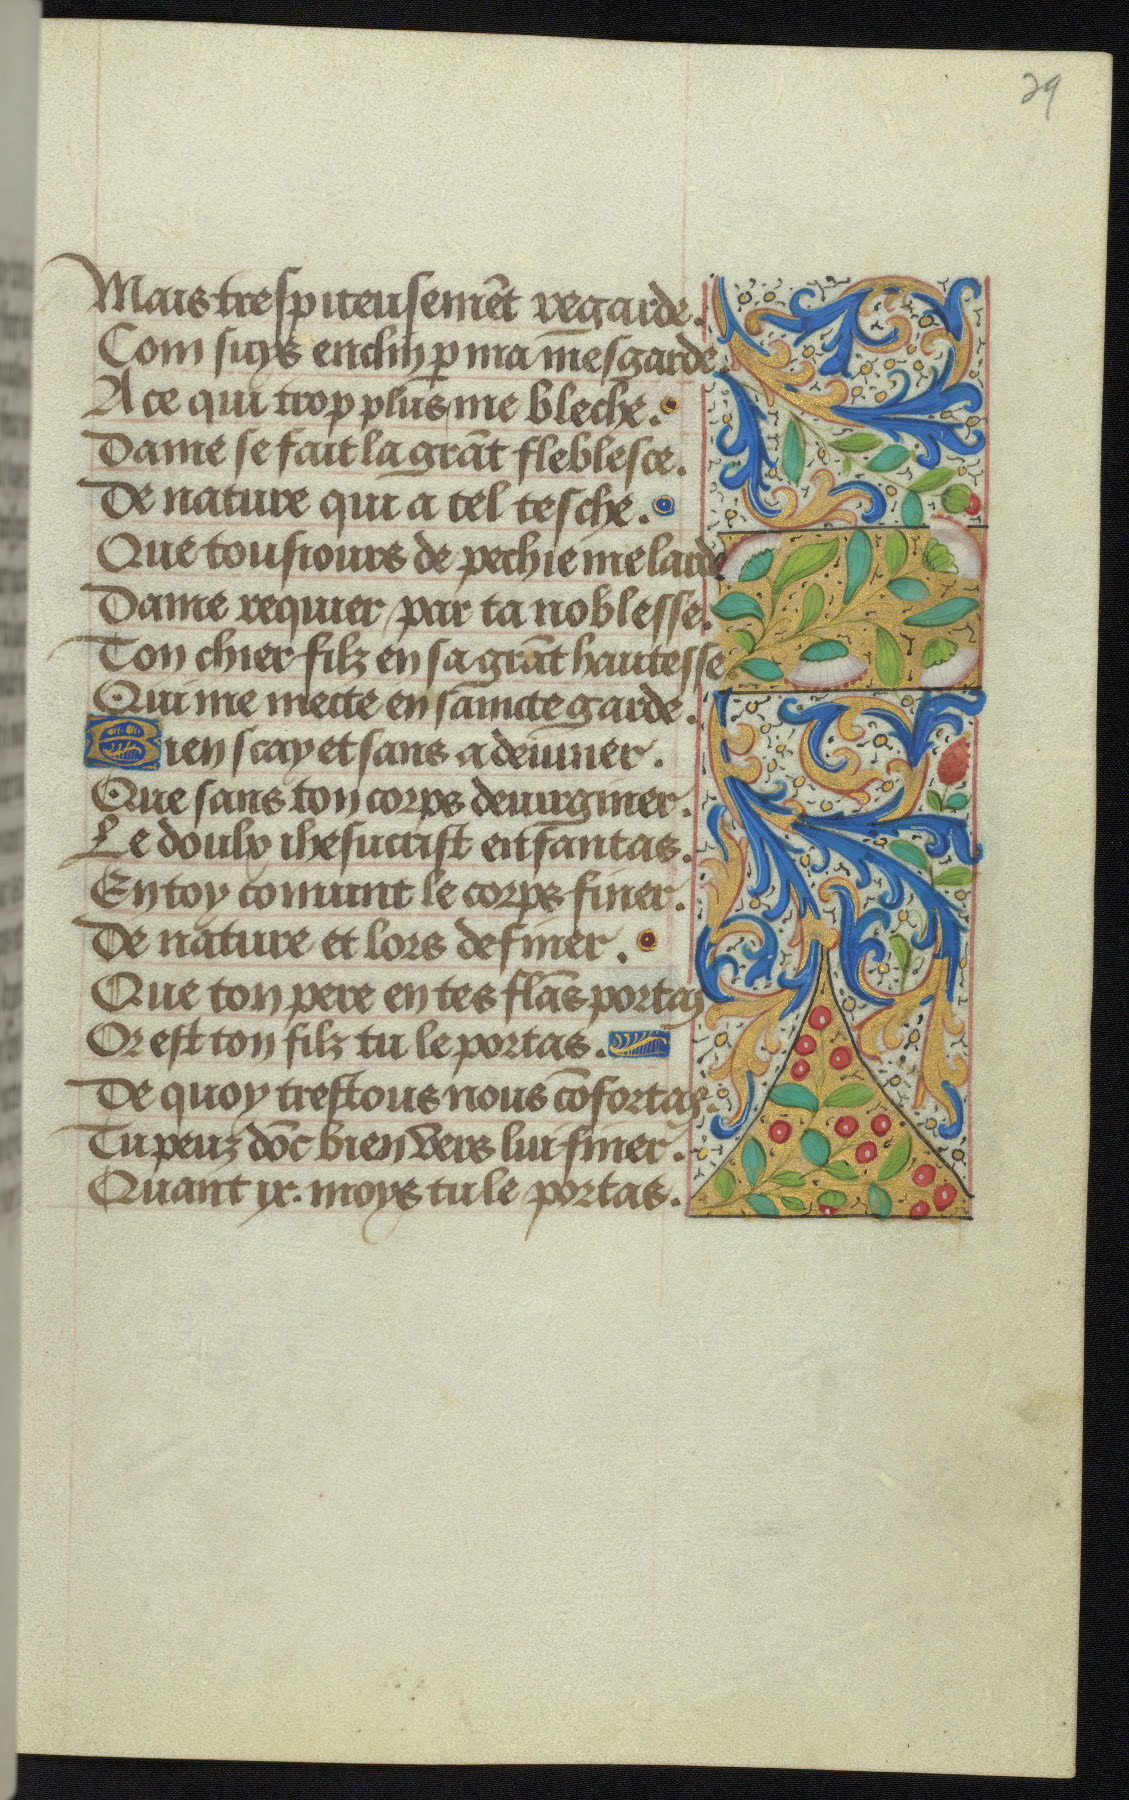 29
Mais trespiteusemẽt regarde.
Com suys enclin p ma mesgarde.
A ce qui trop plus me bleche.
Dame se fait la grãt fleblesce.
De nature qui a tel tesche.
Que tousiours de pechie me larde
Dame requier par ta noblesse.
Ton chier filz en sa grãt hautesse
Qui me mecte en saincte garde.
Bien scay et sans adeuiner.
Que sans ton corps deuirginer.
Le doulx ihesucrist enfantas.
En toy comunt le corps finer.
De nature et lors definer.
Que ton pere en tes flãs portas
Or est ton filz tu le portas.
De quoy trestous nous cõfortas.
Tu peuz dõc bien vers lui finer.
Quant ix. moys tu le portas.